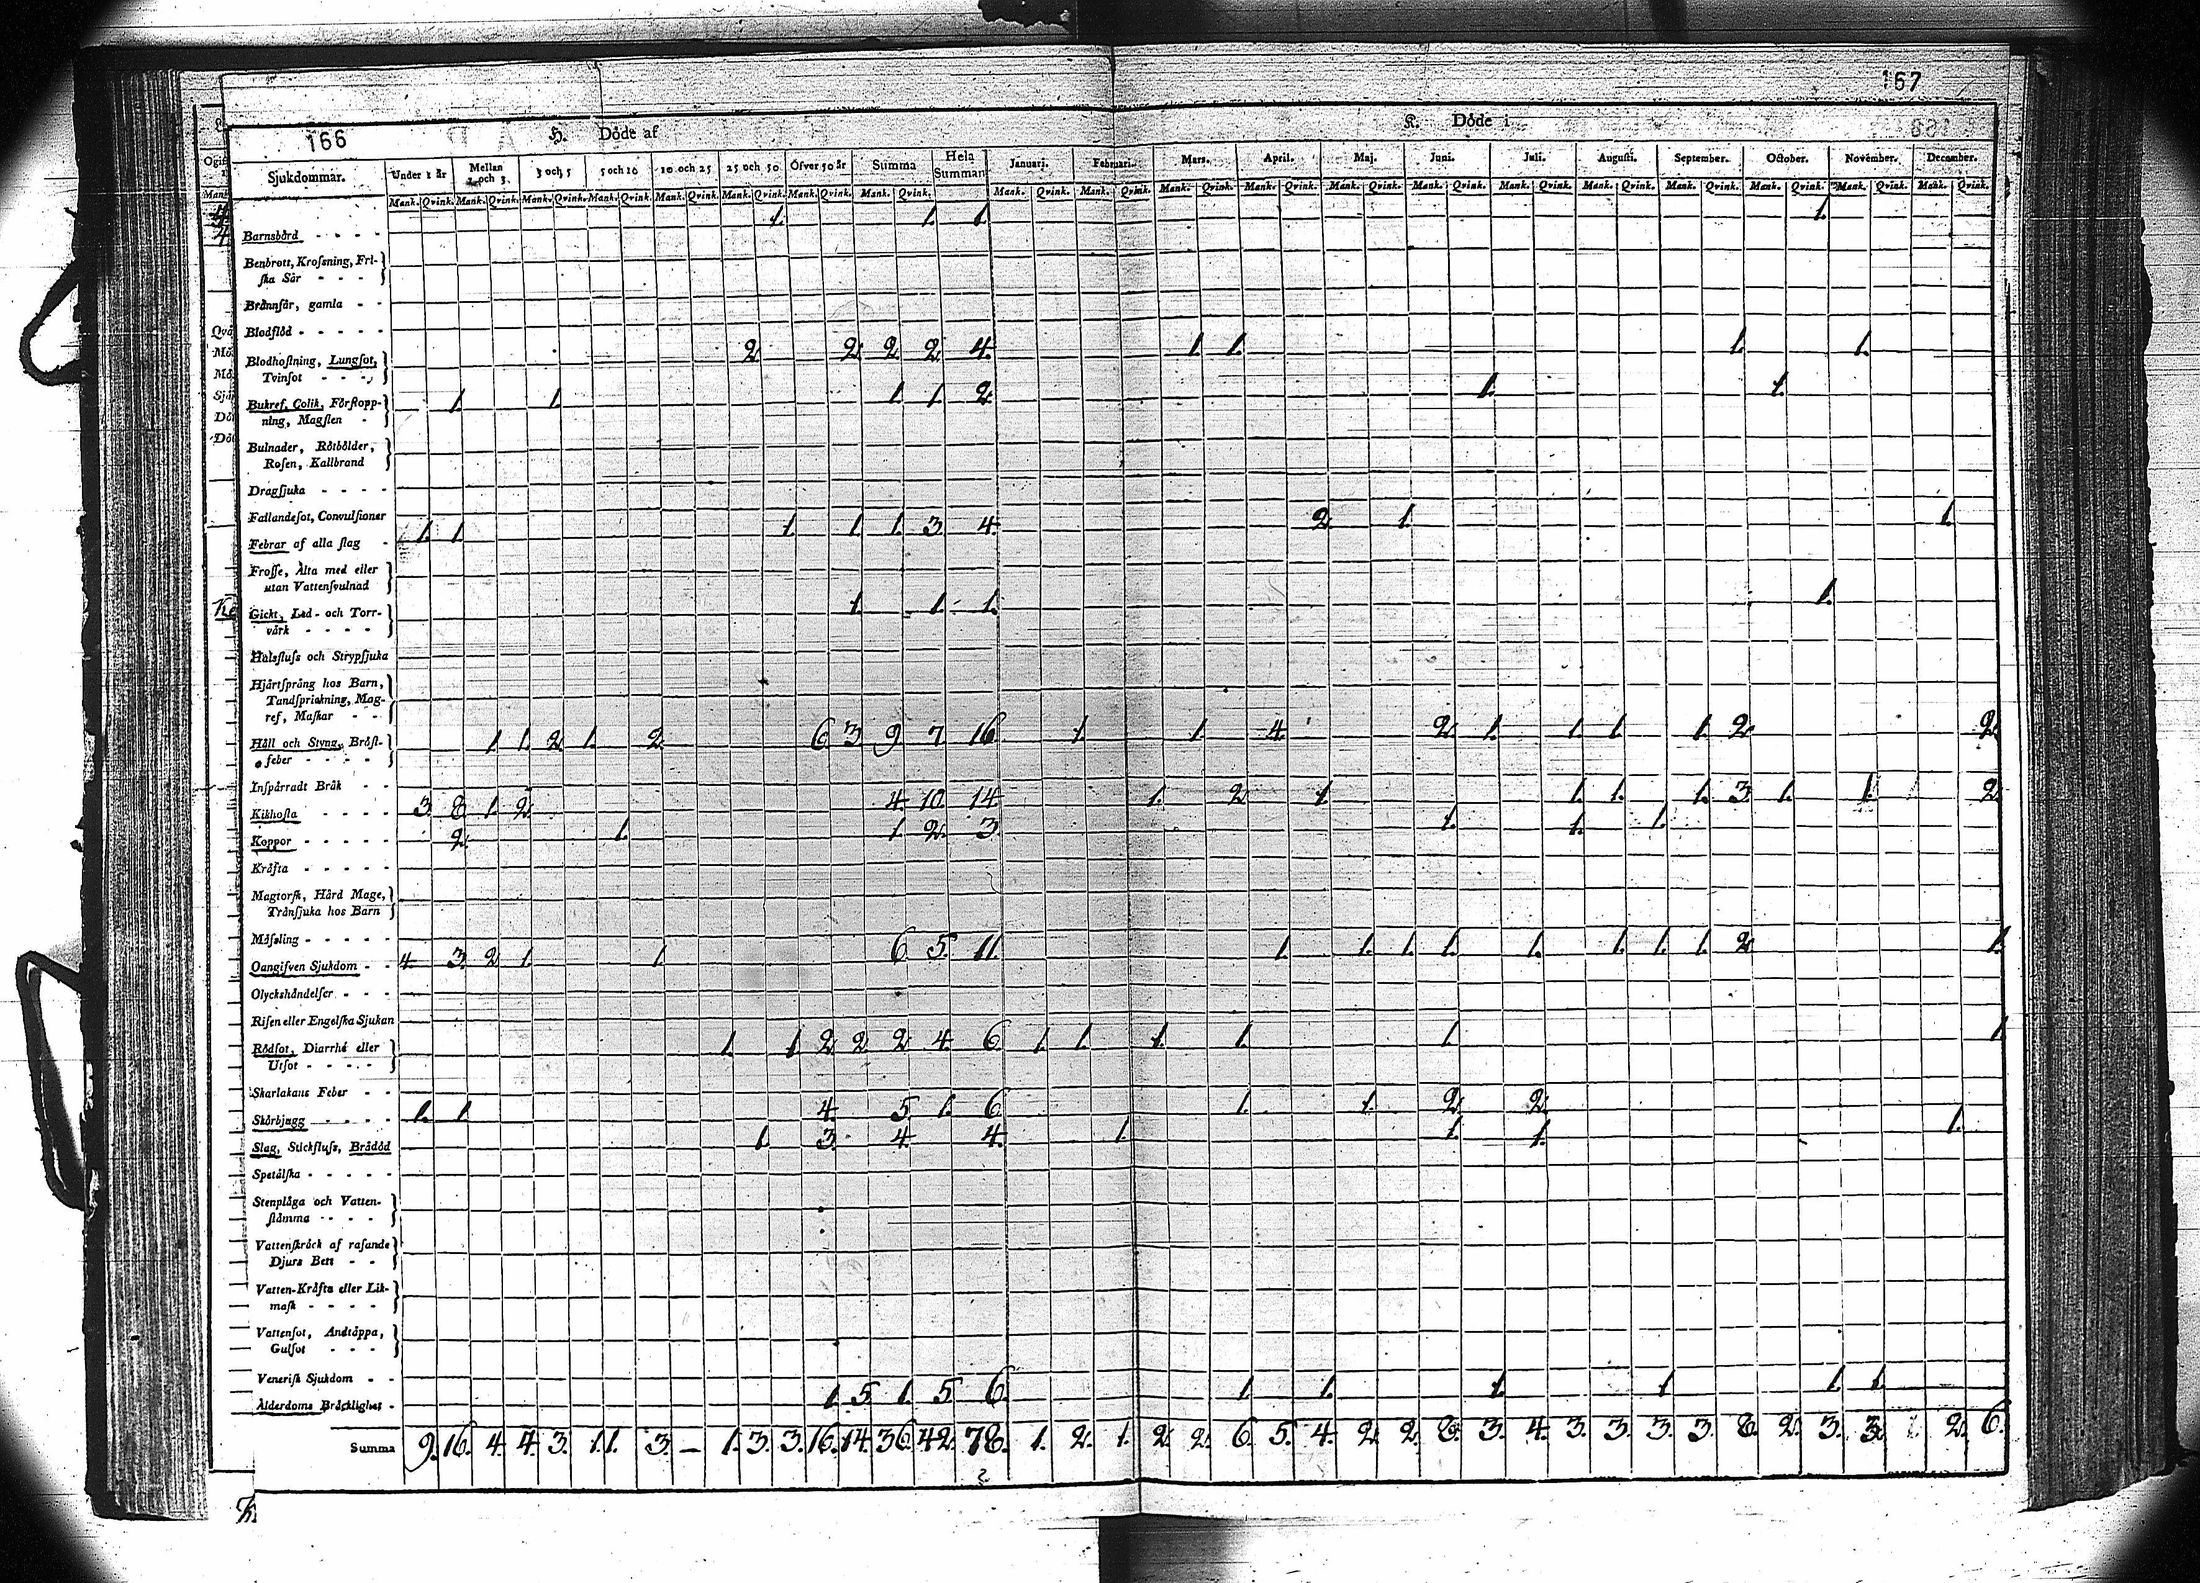 167
166
H. Döde af
K. Döde i
Sjukdommar. Under 1 år Mellan 1 och 3. 3 och 5 5 och 10 10 och 25 25 och 50 Öfver 50 år Summa Hela Summan Januari. Februari. Mars. April. Maj. Juni. Juli. Augusti. September. October. November. December.
Mank. Qvink. Mank. Qvink. Mank. Qvink. Mank. Qvink. Mank. Qvink. Mank. Qvink. Mank. Qvink. Mank. Qvink. Mank. Qvink. Mank. Qvink. Mank. Qvink. Mank. Qvink. Mank. Qvink. Mank. Qvink. Mank. Qvink. Mank. Qvink. Mank. Qvink. Mank. Qvink. Mank. Qvink. Mank. Qvink.
Barnsbörd - - - - 1 1 1 1
Benbrott, Kroſsning, Fri-
ſka Sår - - - -
Brännſår, gamla - -
Blodflöd - - - - -
Blodhoſtning, Lungſot, 2 2 2 2 4. 1. 1. 1. 1.
Tvinſot - - - -
Bukref, Colik, Förſtopp- 1 1 1 1 2 1. 1.
ning, Magſlen -
Bulnader, Rötbölder,
Roſen, Kallbrand
Dragſjuka - - - -
Fallandeſot, Convulſioner
Febrar af alla ſlag - 1. 1. 1. 1. 1. 3. 4. 2. 1. 1.
Froſſe, Älta med eller
utan Vattenſvulnad
Gickt, Led- och Torr- 1. 1. 1. 1.
värk - - - -
Halsfluſs och Strypſjuka
Hjärtſprång hos Barn,
Tandſprickning, Mag-
ref, Maſkar - -
Håll och Styng, Bröſt- 1. 1. 2. 1. 2. 6. 3. 9. 7. 16. 1. 1. 4. 2. 1. 1. 1. 1. 2. 2.
feber - - - - -
Inſpärradt Bråk - -
Kikhoſta - - - - 3. 8. 1. 2. 4. 10. 14. 1. 2. 1. 1. 1. 1. 3. 1. 1. 2.
Koppor - - - - - 2. 1. 1. 2. 3. 1. 1. 1.
Kräfta - - - - -
Magtorſk, Hård Mage,
Tränſjuka hos Barn
Mäſsling - - - - -
Oangifven Sjukdom - - 4. 3. 2. 1. 1. 6. 5. 11. 1. 1. 1. 1. 1. 1. 1. 1. 2. 1.
Olyckshändelſer - - -
Riſen eller Engelſka Sjukan
Rödſot, Diarrhé eller 1. 1. 2. 2. 2. 4. 6. 1. 1. 1. 1. 1. 1.
Utſot - - - - -
Skarlakans Feber - -
Skörbjugg - - - - 1. 1. 4. 5. 1. 6. 1. 1. 2. 2.
Slag, Stickfluſs, Brådöd 1. 3. 4. 4. 1. 1. 1. 1.
Spetälſka - - - - -
Stenplåga och Vatten-
ſtämma - - - -
Vattenſkräck af raſande
Djurs Bett - -
Vatten-Kräfta eller Lik-
maſk - - - -
Vattenſot, Andtäppa,
Gulſot - - -
Veneriſk Sjukdom - -
Ålderdoms Bräcklighet - 1. 5. 1. 5. 6. 1. 1. 1. 1. 1. 1.
Summa 9. 16. 4. 4. 3. 1. 1. 3. — 1. 3. 3. 16. 14. 36. 42. 78. 1. 2. 1. 2. 2. 6. 5. 4. 2. 2. 8. 3. 4. 3. 3. 3. 3. 8. 2. 3. 3. 2. 6.